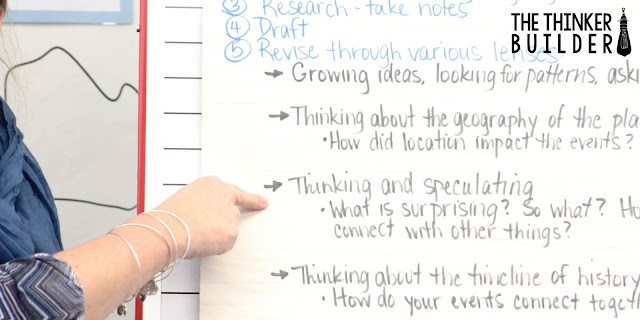 THE THINKER
BUILDER
③ Research - take notes
④ Draft
⑤ Revise through various lenses
→ Growing ideas, looking for patterns, aski
→ Thinking about the geography of the pla
• How did location impact the events?
→ Thinking and speculating
• What is surprising? So what? Ho
connect with other things?
→ Thinking about the timeline of history
• How do your events connect togeth